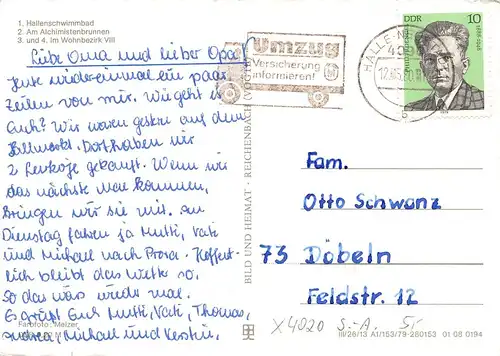 1. Hallenschwimmbad
2. Am Alchimistenbrunnen
3. und 4. Im Wohnbezirk VIII
Liebe Oma und lieber Opa!
Heute wieder einmal ein paar
Zeilen von mir. Wie geht es
Euch? Wir waren gestern auf dem
Dort haben wir
2 gekauft. Wenn wir
das nächste Mal kommen,
bringen wir sie mit. Am
Dienstag fahren ja Mutti, Vati
und Michael nach Hoffent-
lich bleibt das Wetter so.
So das wars wieder mal.
Es grüßt Euch Mutti, Vati, Thomas,
Andrea, Michael und Kerstin.
Farbfoto: Melzer
BILD UND HEIMAT · REICHENBACH (VOGTL)
Umzug
Versicherung
informieren!
HALLE-N
DDR 10
Fam.
Otto Schwanz
73 Döbeln
Feldstr. 12
X 4020 S.-A. 5,-
III/26/13 A1/153/79-280153 01 08 0194